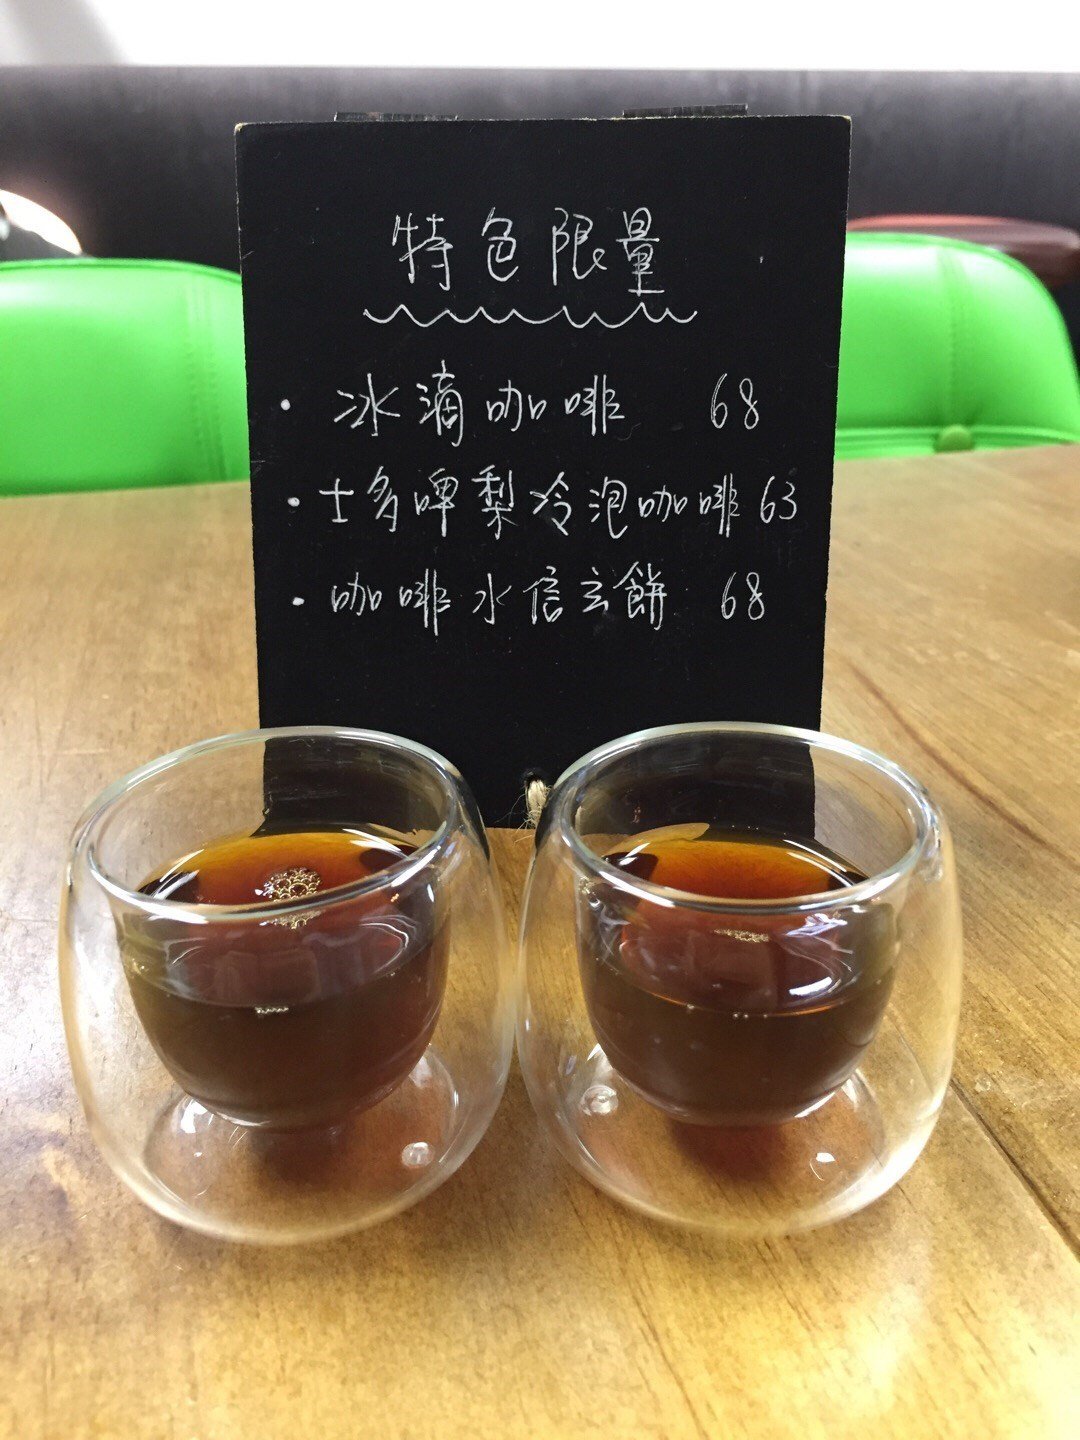 特色限量
· 冰滴咖啡 68
· 士多啤梨冷泡咖啡 63
· 咖啡水信玄餅 68